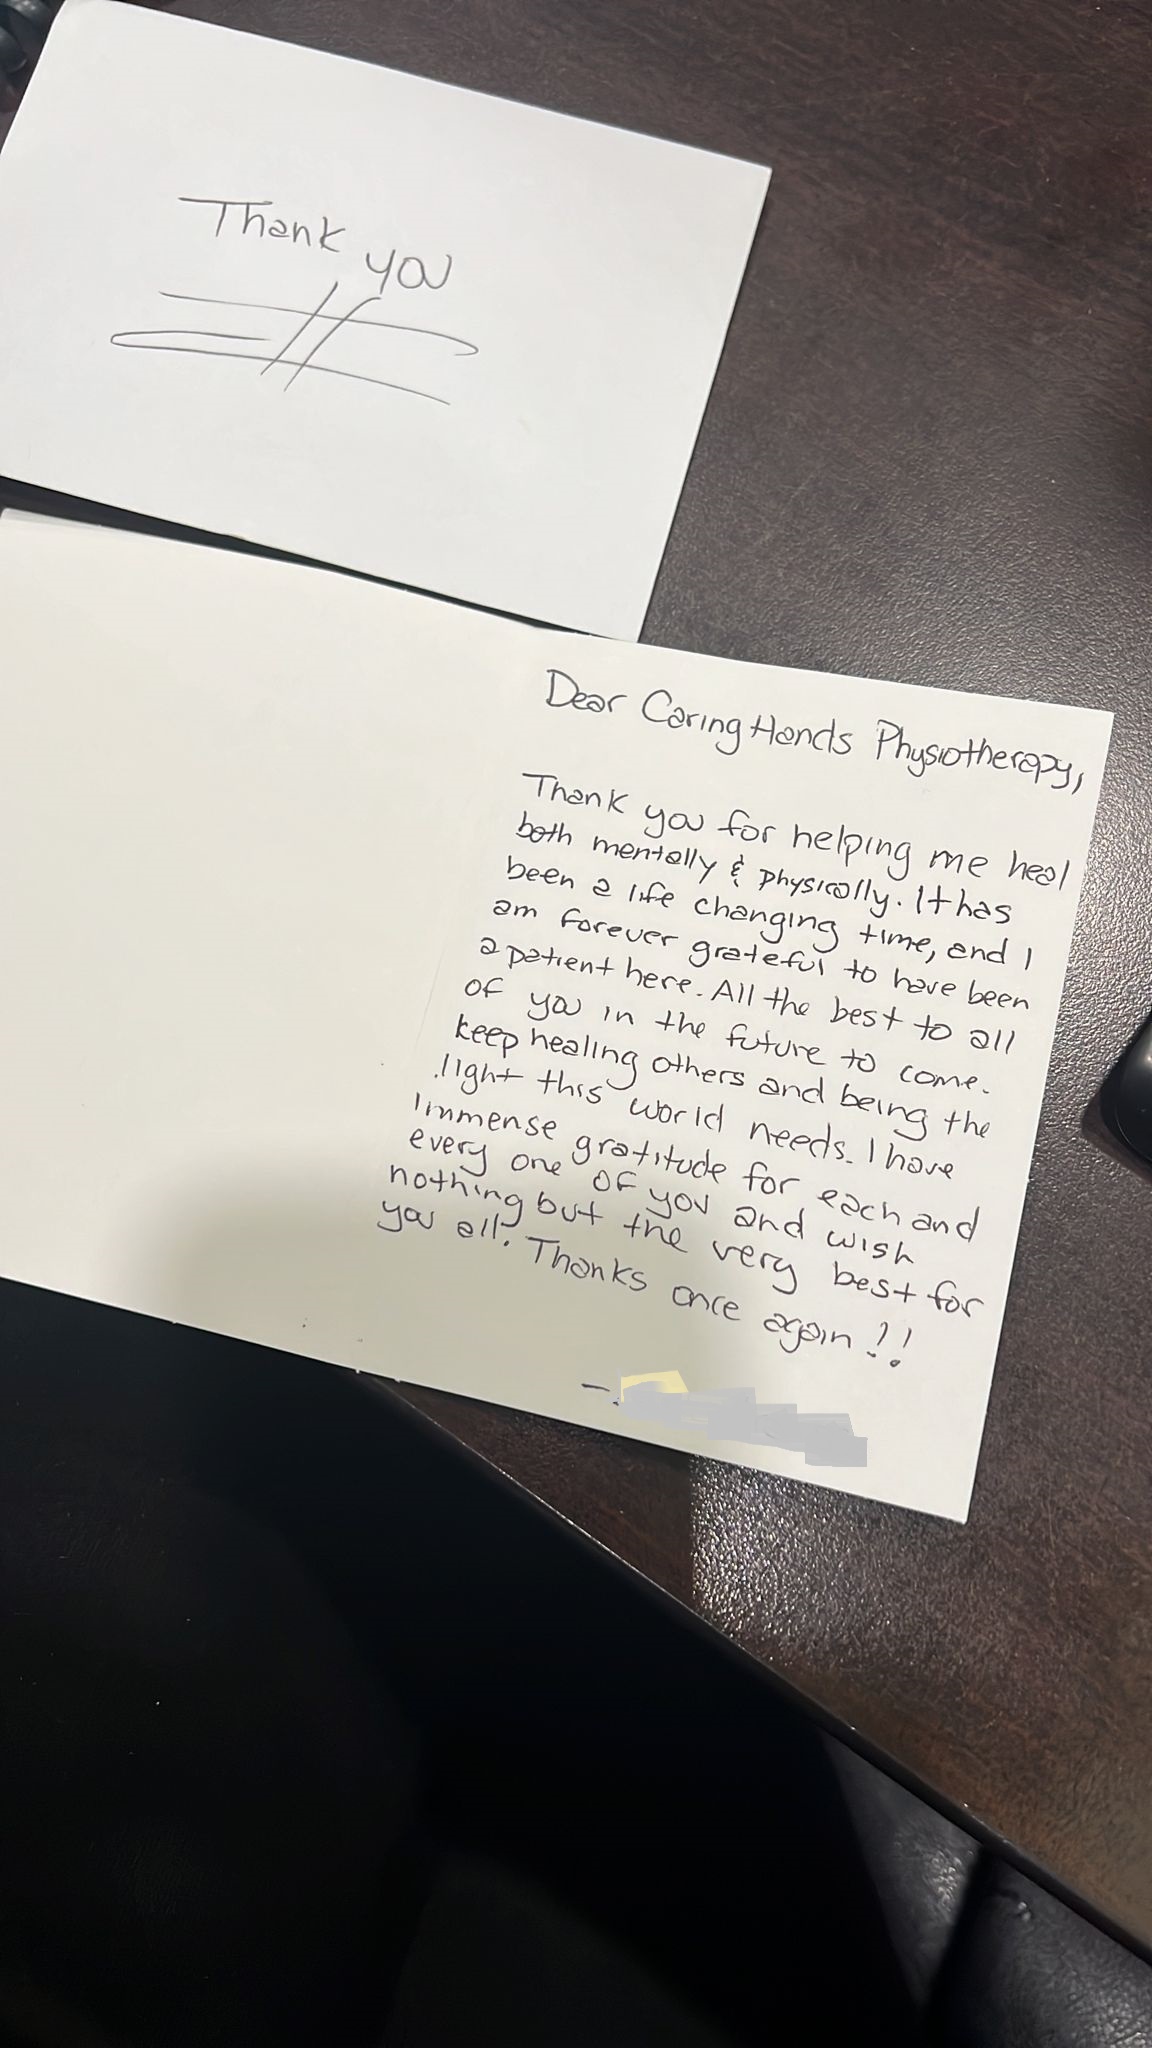 Thank
you
Dear Caring Hands Physiotherapy,
Thank you for helping me heal
both mentally & physically. It has
been a life changing time, and I
am forever grateful to have been
a patient here. All the best to all
of you in the future to come.
keep healing others and being the
light this world needs. I have
immense gratitude for each and
every one of you and wish
nothing but the very best for
you all. Thanks once again!!